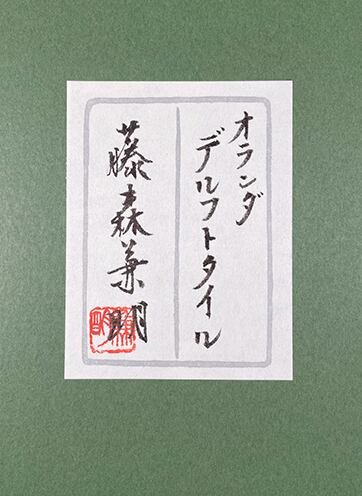 オランダ
デルフトタイル
藤森兼明